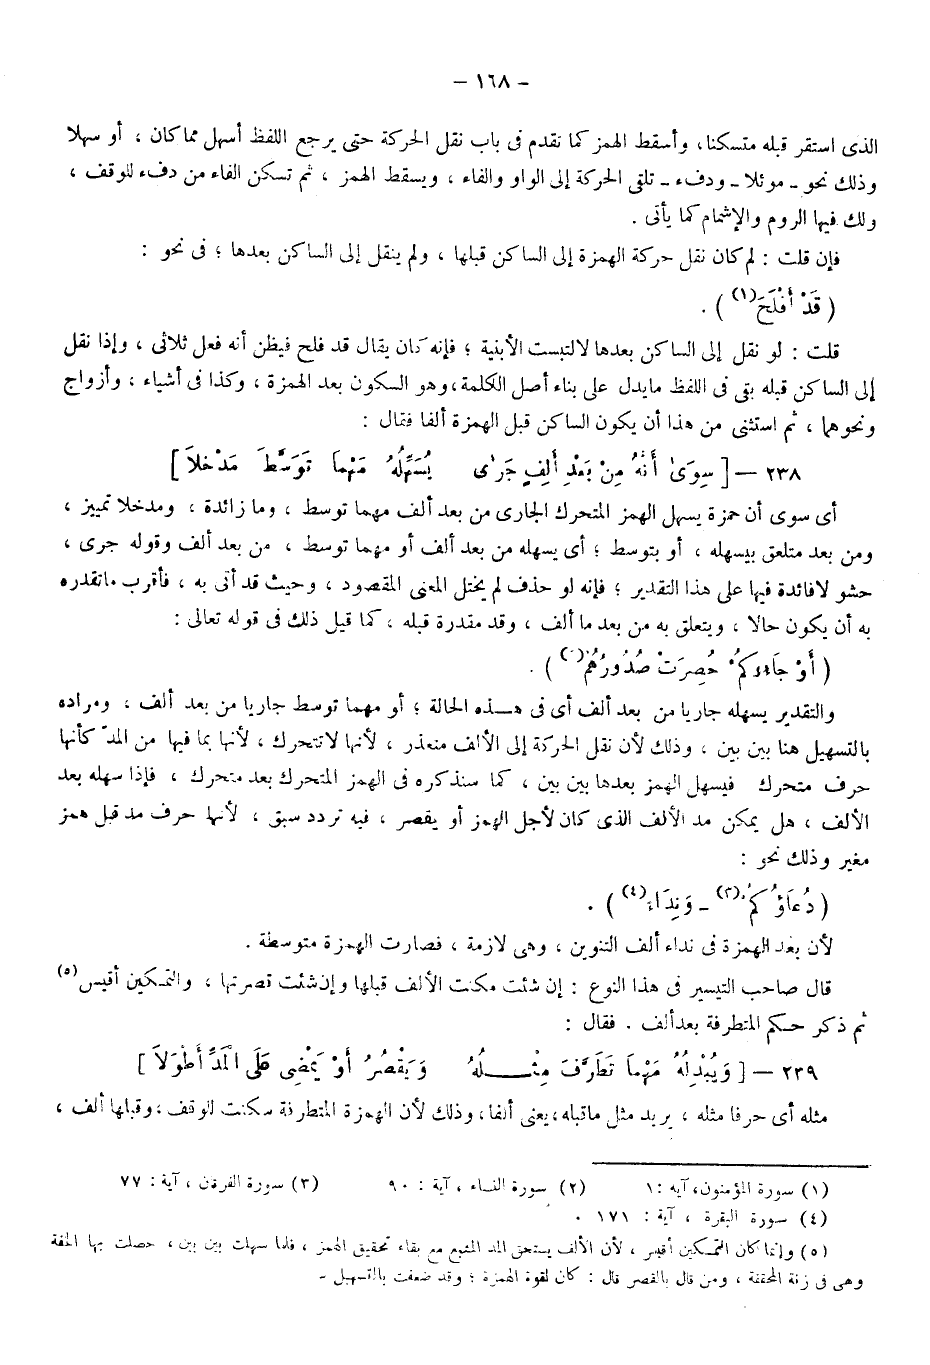 - ١٦٨ -
الذى استقر قبله متسكنا، وأسقط الهمز كما تقدم فى باب نقل الحركة حتى يرجع اللفظ أسهل مما كان ، أو سهلا
وذلك نحو ــ موئلا ــ ودفء ــ تلقى الحركة إلى الواو والفاء ، ويسقط الهمز ، ثم تسكن الفاء من دفء للوقف ،
ولك فيها الروم والإشمام كما يأتى .
فإن قلت : لم كان نقل حركة الهمزة إلى الساكن قبلها ، ولم ينقل إلى الساكن بعدها ؛ فى نحو :
( قَدْ أَفْلَحَ (١) ) .
قلت : لو نقل إلى الساكن بعدها لالتبست الأبنية ؛ فإنه كان يقال قد فلح فيظن أنه فعل ثلاثى ، وإذا نقل
إلى الساكن قبله بقى فى اللفظ مايدل على بناء أصل الكلمة، وهو السكون بعد الهمزة ، وكذا فى أشياء ، وأزواج
ونحوهما ، ثم استثنى من هذا أن يكون الساكن قبل الهمزة ألفا فقال :
٢٣٨ – [ سِوَىٰ أَنَّهُ مِنْ بَعْدِ أَلِفٍ جَرَىٰ يُسَهِّلُهُ مَهْمَا تَوَسَّطَ مَدْخَلاَ ]
أى سوى أن حمزة يسهل الهمز المتحرك الجارى من بعد ألف مهما توسط ، وما زائدة ، ومدخلا تمييز ،
ومن بعد متعلق بيسهله ، أو بتوسط ؛ أى يسهله من بعد ألف أو مهما توسط ، من بعد ألف وقوله جرى ،
حشو لافائدة فيها على هذا التقدير ؛ فإنه لو حذف لم يختل المعنى المقصود ، وحيث قد أتى به ، فأقرب ماتقدره
به أن يكون حالا ، ويتعلق به من بعد ما ألف ، وقد مقدرة قبله ، كما قيل ذلك فى قوله تعالى :
( أَوْ جَاءُوكُمْ حَصِرَتْ صُدُورُهُمْ (٢) ) .
والتقدير يسهله جاريا من بعد ألف أى فى هـذه الحالة ؛ أو مهما توسط جاريا من بعد ألف ، ومراده
بالتسهيل هنا بين بين ، وذلك لأن نقل الحركة إلى الألف متعذر ، لأنها لاتتحرك ، لأنها بما فيها من المدّ كأنها
حرف متحرك فيسهل الهمز بعدها بين بين ، كما سنذكره فى الهمز المتحرك بعد متحرك ، فإذا سهله بعد
الألف ، هل يمكن مد الألف الذى كان لأجل الهمز أو يقصر ، فيه تردد سبق ، لأنها حرف مد قبل همز
مغير وذلك نحو :
( دُعَاؤُكُمْ (٣) ــ وَنِدَاءً (٤) ) .
لأن بعد الهمزة فى نداء ألف التنوين ، وهى لازمة ، فصارت الهمزة متوسطة .
قال صاحب التيسير فى هذا النوع : إن شئت مكنت الألف قبلها وإن شئت قصرتها ، والتمكين أقيس (٥)
ثم ذكر حكم المتطرفة بعد ألف . فقال :
٢٣٩ – [ وَيُبْدِلُهُ مَهْمَا تَطَرَّفَ مِثْـلَهُ وَيَقْصُرُ أَوْ يَمْضِى عَلَى الْمَدِّ أَطْوَلاَ ]
مثله أى حرفا مثله ، يريد مثل ماقبله ، يعنى ألفا ، وذلك لأن الهمزة المتطرفة سكنت للوقف ، وقبلها ألف ،
(١) سورة المؤمنون، آية : ١ (٢) سورة النساء ، آية : ٩٠ (٣) سورة الفرقان ، آية : ٧٧
(٤) سورة البقرة ، آية : ١٧١ .
(٥) وإنما كان التمكين أقيس ، لأن الألف يستحق المد المشبع مع بقاء تحقيق الهمز ، فلما سهلت بين بين ، حصلت بها الخفة
وهى فى زنة المحققة ، ومن قال بالقصر قال : كان لقوة الهمزة ؛ وقد ضعفت بالتسهيل -